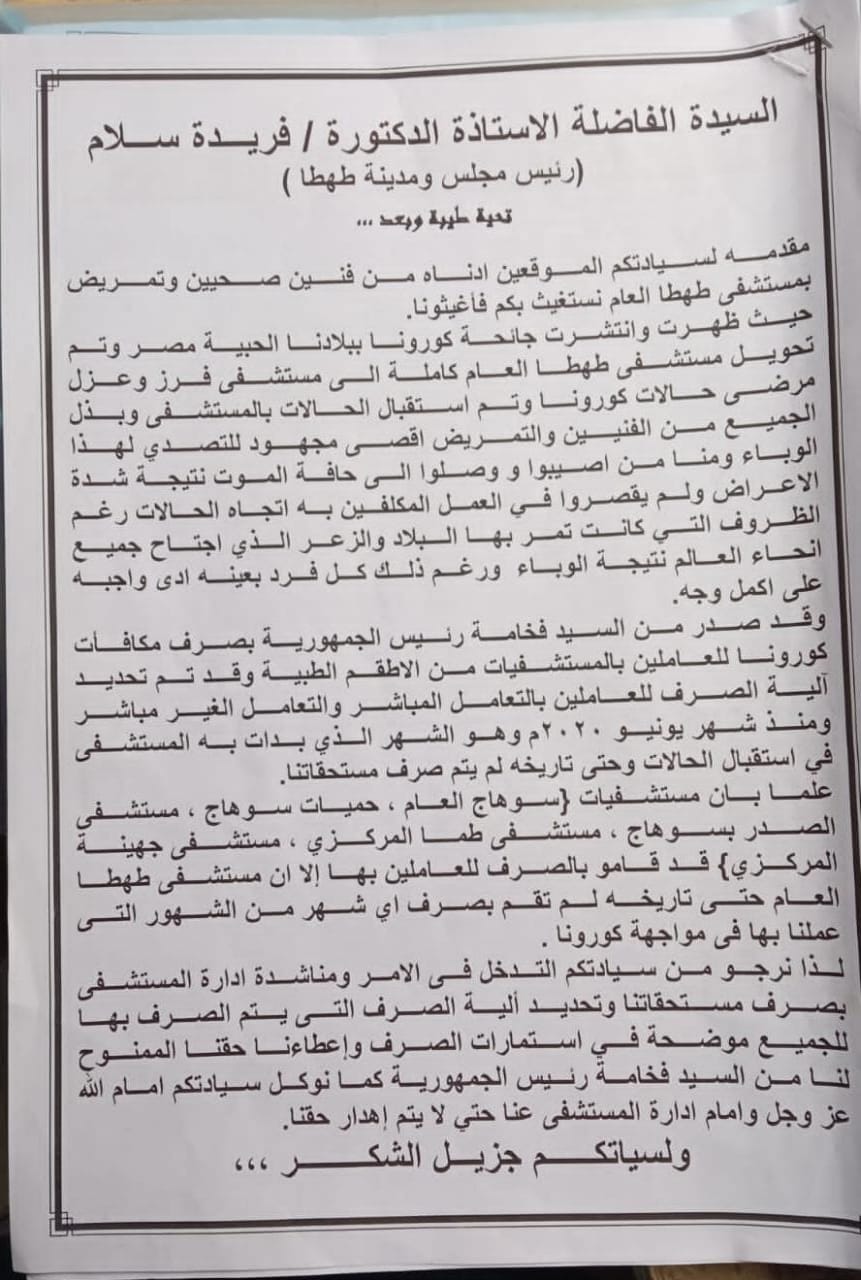 السيدة الفاضلة الاستاذة الدكتورة / فريدة سلام
(رئيس مجلس ومدينة طهطا )
تحية طيبة وبعد ...
مقدمه لسيادتكم الموقعين ادناه من فنين صحيين وتمريض
بمستشفى طهطا العام نستغيث بكم فأغيثونا.
حيث ظهرت وانتشرت جائحة كورونا ببلادنا الحبية مصر وتم
تحويل مستشفى طهطا العام كاملة الى مستشفى فرز وعزل
مرضى حالات كورونا وتم استقبال الحالات بالمستشفى وبذل
الجميع من الفنيين والتمريض اقصى مجهود للتصدي لهذا
الوباء ومنا من اصيبوا و وصلوا الى حافة الموت نتيجة شدة
الاعراض ولم يقصروا في العمل المكلفين به اتجاه الحالات رغم
الظروف التي كانت تمر بها البلاد والزعر الذي اجتاح جميع
انحاء العالم نتيجة الوباء ورغم ذلك كل فرد بعينه ادى واجبه
على اكمل وجه.
وقد صدر من السيد فخامة رئيس الجمهورية بصرف مكافأت
كورونا للعاملين بالمستشفيات من الاطقم الطبية وقد تم تحديد
آلية الصرف للعاملين بالتعامل المباشر والتعامل الغير مباشر
ومنذ شهر يونيو ٢٠٢٠م وهو الشهر الذي بدات به المستشفى
في استقبال الحالات وحتى تاريخه لم يتم صرف مستحقاتنا.
علما بان مستشفيات {سوهاج العام ، حميات سوهاج ، مستشفى
الصدر بسوهاج ، مستشفى طما المركزي ، مستشفى جهينة
المركزي} قد قامو بالصرف للعاملين بها إلا ان مستشفى طهطا
العام حتى تاريخه لم تقم بصرف اي شهر من الشهور التى
عملنا بها فى مواجهة كورونا .
لذا نرجو من سيادتكم التدخل فى الامر ومناشدة ادارة المستشفى
بصرف مستحقاتنا وتحديد ألية الصرف التى يتم الصرف بها
للجميع موضحة في استمارات الصرف وإعطاءنا حقنا الممنوح
لنا من السيد فخامة رئيس الجمهورية كما نوكل سيادتكم امام الله
عز وجل وامام ادارة المستشفى عنا حتي لا يتم إهدار حقنا.
ولسياتكم جزيل الشكر ،،،